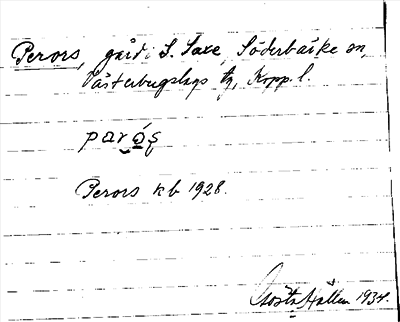 Perors, gård i S. Saxe, Söderbärke sn,
Västerbergslags tg, Kopp. l.
Perors kb 1928.
Gösta Hallen 1934.